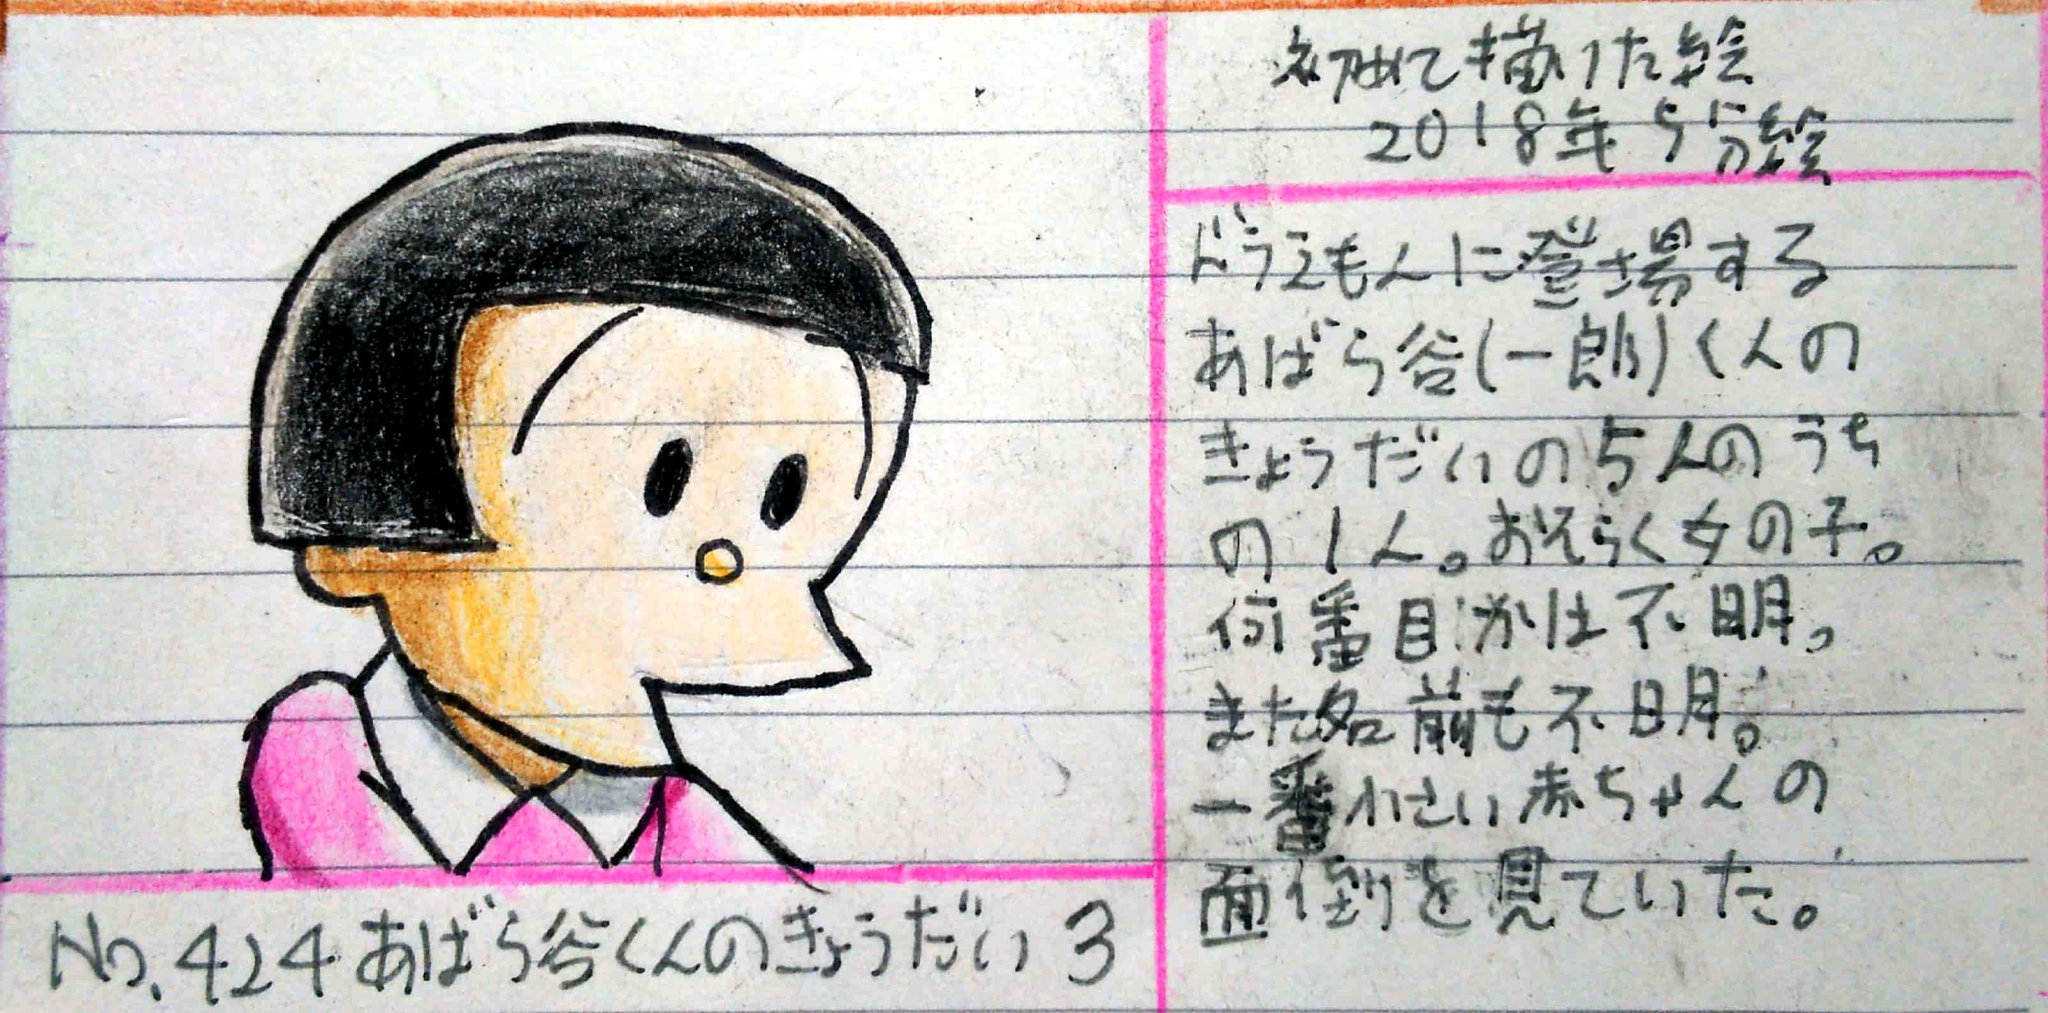 初めて描けた絵
2018年5分絵
ドラえもんに登場する
あばら谷(一郎)くんの
きょうだいの5人のうち
の1人。おそらく女の子。
何番目かは不明。
また名前も不明。
一番小さい赤ちゃんの
面倒を見ていた。
No.424あばら谷くんのきょうだい3